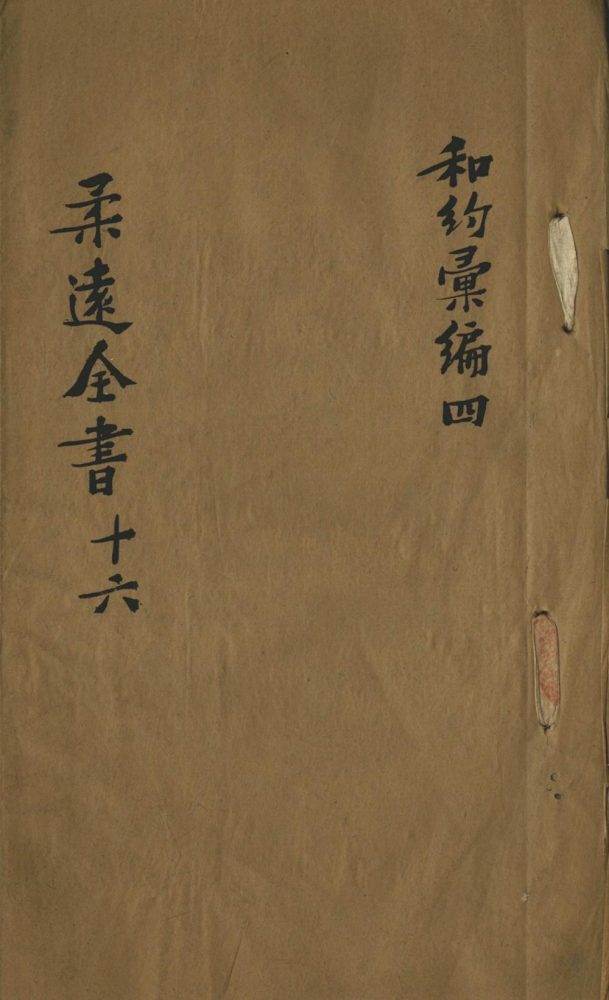 和約彙編四
柔遠全書十六